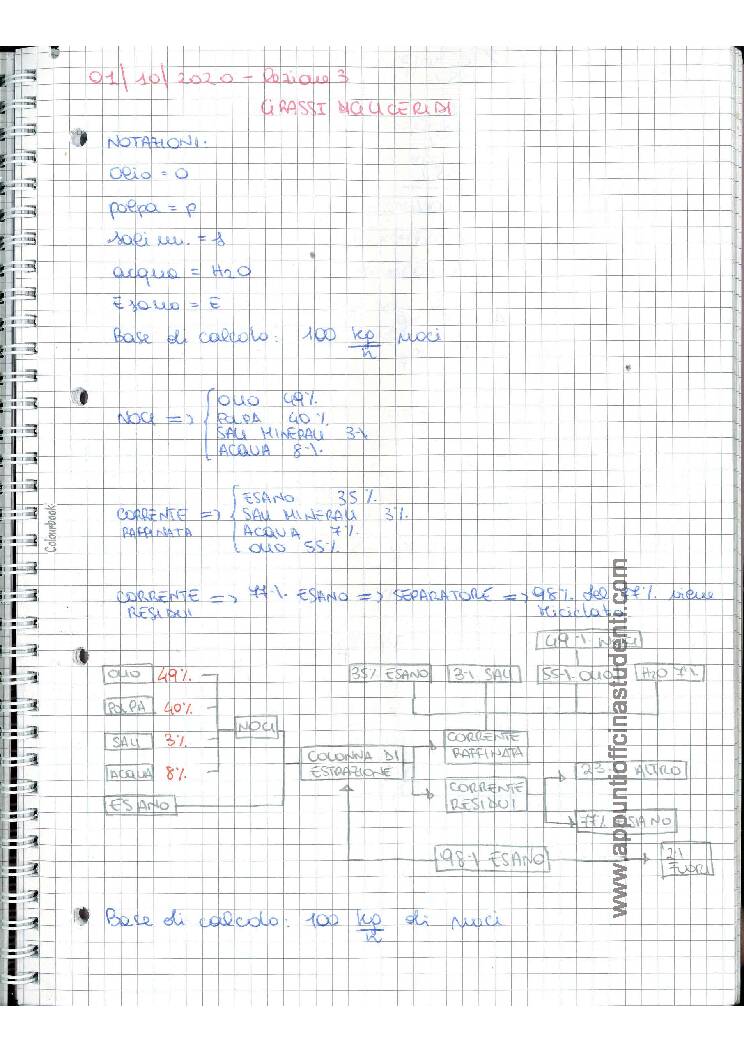 01/10/2020 - Lezione 3
GRASSI DIGLICERIDI
NOTAZIONI.
Olio = O
polpa = p
sali m. = s
acqua = H2O
Esano = E
Base di calcolo: 100 kg/h noci
NOCI => OLIO 49%
POLPA 40%
SALI MINERALI 3%
ACQUA 8%
CORRENTE RAFFINATA => ESANO 35%
SALI MINERALI 3%
ACQUA 7%
OLIO 55%
CORRENTE RESIDUI => 77% ESANO => SEPARATORE => 98% del 77% viene
riciclato
49% NOCI
OLIO 49%
35% ESANO
3% SALI
55% OLIO
H2O 7%
POLPA 40%
NOCI
SALI 3%
ACQUA 8%
ESANO
COLONNA DI
ESTRAZIONE
CORRENTE
RAFFINATA
CORRENTE
RESIDUI
23% ALTRO
77% ESANO
98% ESANO
2%
FUORI
Base di calcolo: 100 kg/h di noci
Colourbook
www.appuntiofficinastudenti.com